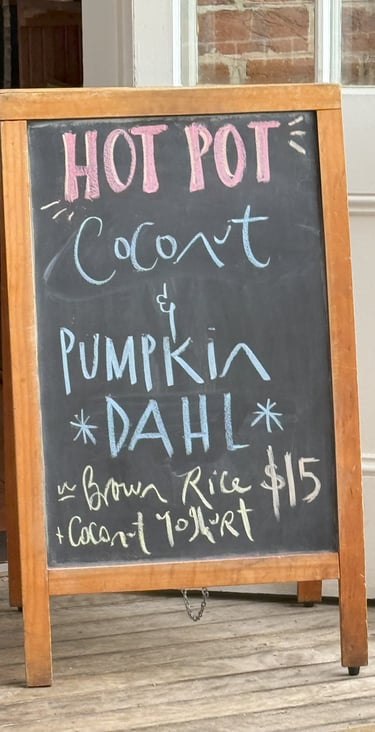 HOT POT
Coconut
&
PUMPKin
*DAHL*
w Brown Rice $15
+ Coconut YogHuRt